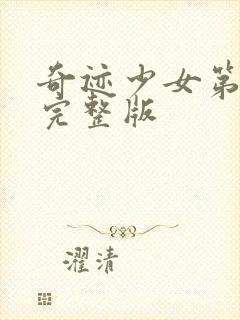 奇迹少女第
完整版
濯清